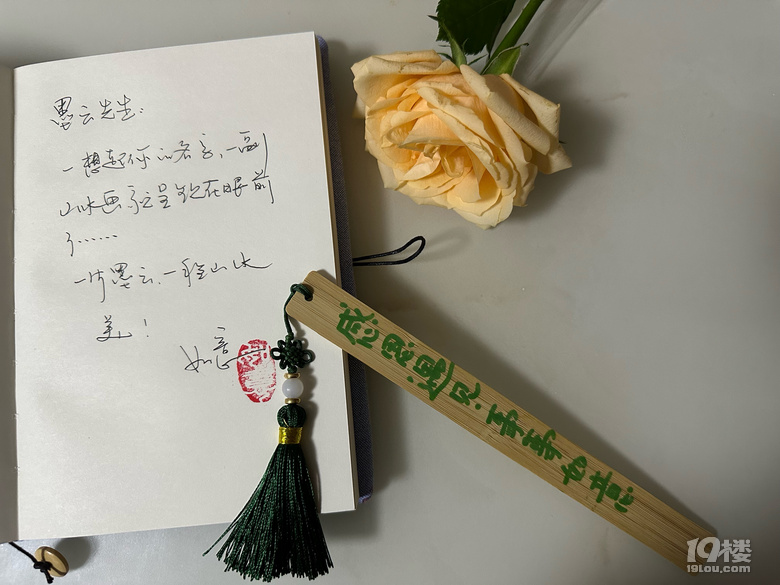 墨云先生:
一想起你的名字,一副
山水画就呈现在眼前
了……
一片墨云,一程山水
美!
如意
感恩遇见·事事如意
19楼
19lou.com